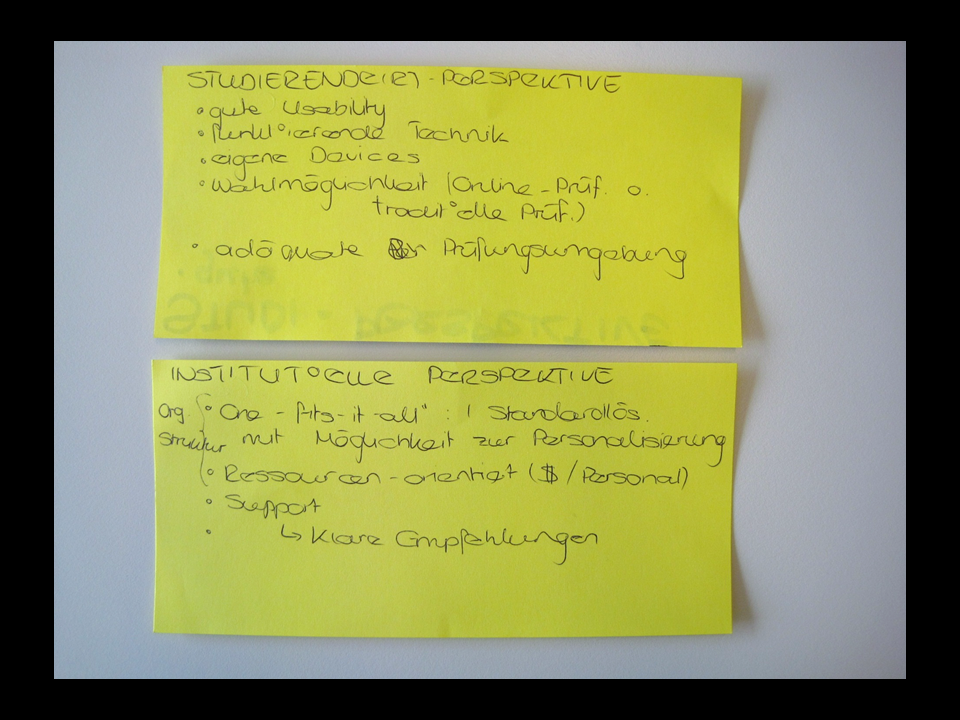 STUDIERENDE(R) - PERSPEKTIVE
• gute Usability
• funkt°ierende Technik
• eigene Devices
• Wahlmöglichkeit (Online-Prüf. o.
tradit°elle Prüf.)
• adäquate Prüfungsumgebung
STUDI - PERSPEKTIVE
INSTITUT°ELLE PERSPEKTIVE
Org. • One-fits-it-all" : 1 Standardlös.
struktur mit Möglichkeit zur Personalisierung
• Ressourcen-orientiert ($/Personal)
• Support
• ↳ Klare Empfehlungen